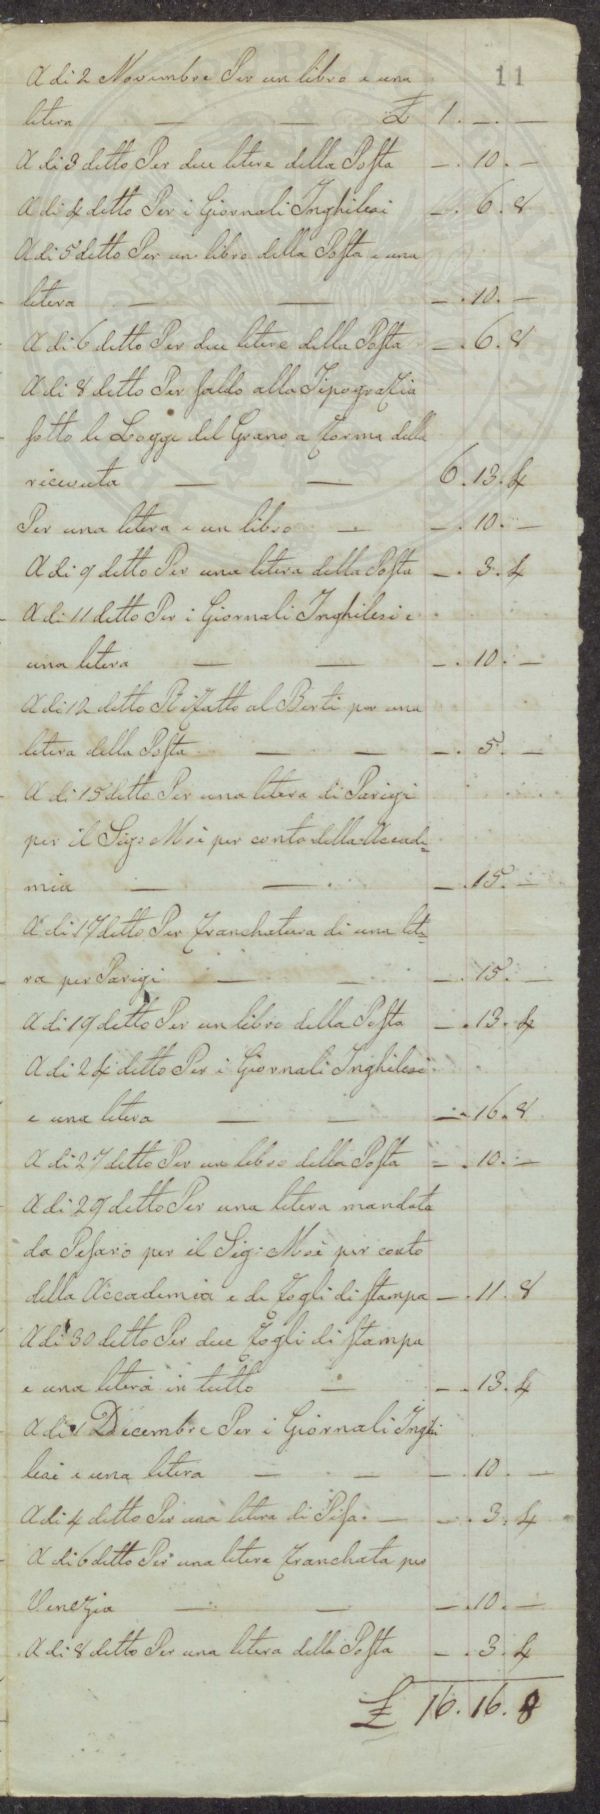 11
A di 2 Novembre Per un libro e una
litera — — £ 1. — . —
A di 3 detto Per due litere della Posta — . 10. —
A di 4 detto Per i Giornali Inghilesi — . 6. 8
A di 5 detto Per un libro della Posta e una
litera — — — . 10. —
A di 6 detto Per due litere della Posta — . 6. 8
A di 8 detto Per saldo alla Tipografia
sotto le Logge del Grano a forma della
ricevuta — — 6. 13. 4
Per una litera e un libro — — . 10. —
A di 9 detto Per una litera della Posta — . 3. 4
A di 11 detto Per i Giornali Inghilesi e
una litera — — — . 10. —
A di 12 detto Rifatto al Berti per una
litera della Posta — — — . 5. —
A di 15 detto Per una litera di Parigi
per il Sig: Mosè per conto della Accade=
mia — — — . 15. —
A di 17 detto Per franchatura di una lite=
ra per Parigi — — — . 15. —
A di 19 detto Per un libro della Posta — . 13. 4
A di 24 detto Per i Giornali Inghilesi
e una litera — — — . 16. 8
A di 27 detto Per un libro della Posta — . 10. —
A di 29 detto Per una litera mandata
da Pesaro per il Sig: Mosè per conto
della Accademia e di fogli di stampa — . 11. 8
A di 30 detto Per due fogli di stampa
e una litera in tutto — — . 13. 4
A di 1 Decembre Per i Giornali Inghi
lesi e una litera — — — . 10. —
A di 4 detto Per una litera di Pisa. — — . 3. 4
A di 6 detto Per una litera franchata per
Venezia — — — . 10. —
A di 8 detto Per una litera della Posta — . 3. 4
£ 16. 16. 8